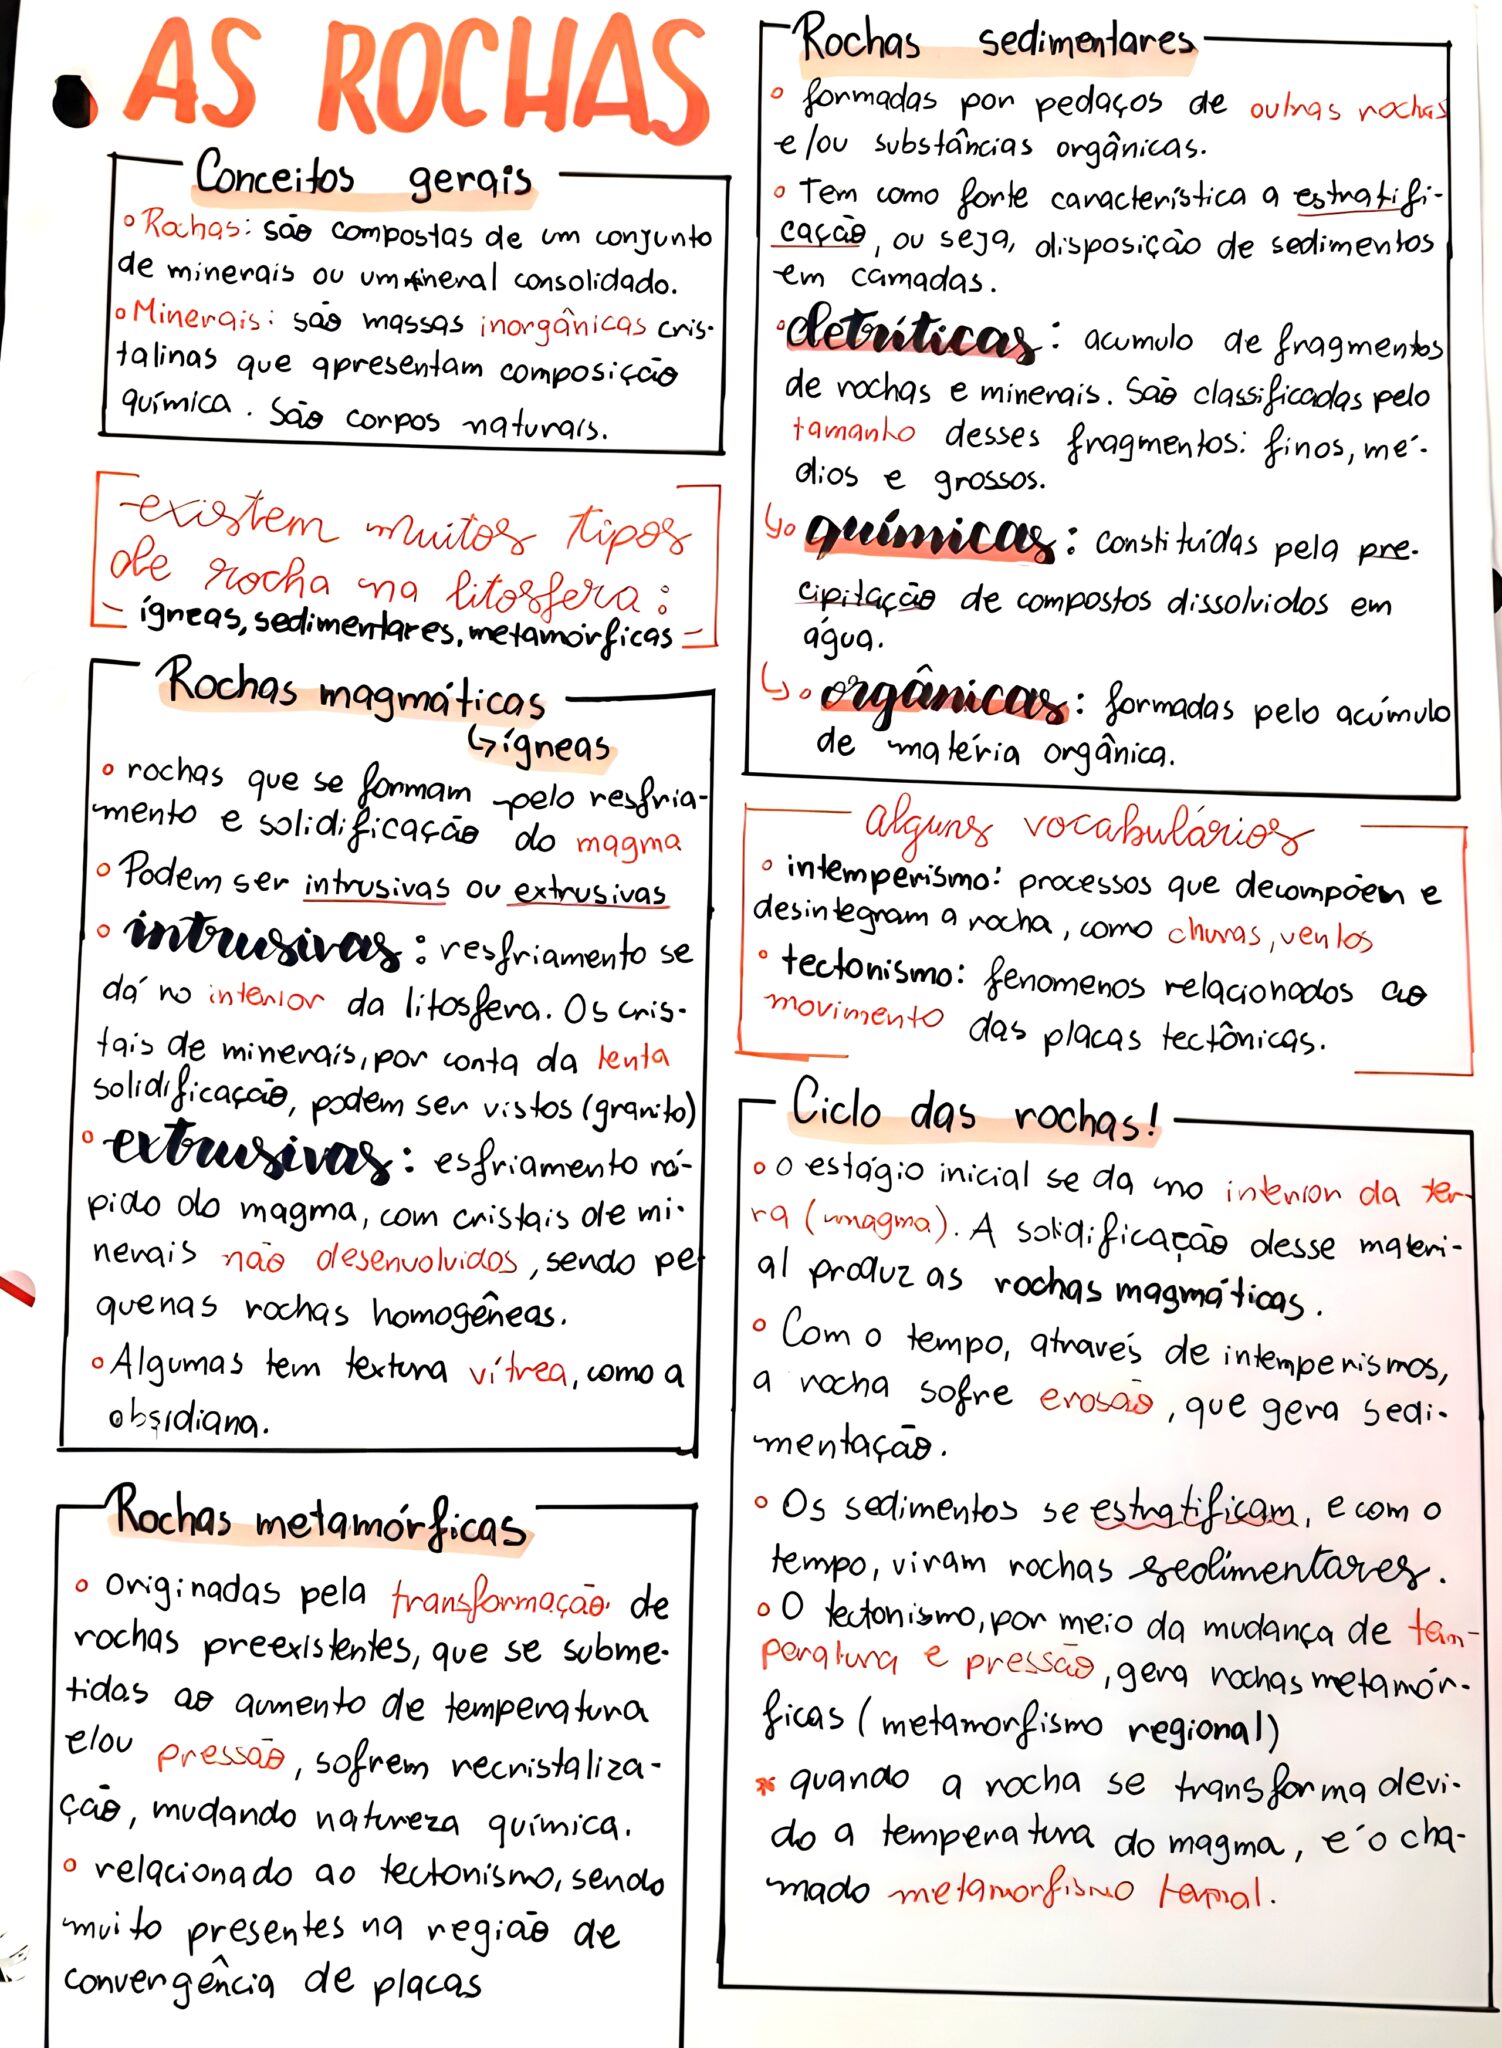 AS ROCHAS
Conceitos gerais
• Rochas: são compostas de um conjunto
de minerais ou um mineral consolidado.
• Minerais: são massas inorgânicas cris-
talinas que apresentam composição
química. São corpos naturais.
existem muitos tipos
de rocha na litosfera:
ígneas, sedimentares, metamórficas
Rochas magmáticas
↳ígneas
• rochas que se formam pelo resfria-
mento e solidificação do magma
• Podem ser intrusivas ou extrusivas
• intrusivas: resfriamento se
dá no interior da litosfera. Os cris-
tais de minerais, por conta da lenta
solidificação, podem ser vistos (granito)
• extrusivas: esfriamento rá-
pido do magma, com cristais de mi-
nerais não desenvolvidos, sendo pe
quenas rochas homogêneas.
• Algumas tem textura vítrea, como a
obsidiana.
Rochas metamórficas
• originadas pela transformação de
rochas preexistentes, que se subme-
tidas ao aumento de temperatura
e/ou pressão, sofrem recristaliza-
ção, mudando natureza química.
• relacionado ao tectonismo, sendo
muito presentes na região de
convergência de placas
Rochas sedimentares
• formadas por pedaços de outras rochas
e/ou substâncias orgânicas.
• Tem como forte característica a estratifi-
cação, ou seja, disposição de sedimentos
em camadas.
• detríticas: acumulo de fragmentos
de rochas e minerais. São classificadas pelo
tamanho desses fragmentos: finos, mé-
dios e grossos.
↳• químicas: constituídas pela pre-
cipitação de compostos dissolvidos em
água.
↳• orgânicas: formadas pelo acúmulo
de matéria orgânica.
alguns vocabulários
• intemperismo: processos que decompõem e
desintegram a rocha, como chuvas, ventos
• tectonismo: fenomenos relacionados ao
movimento das placas tectônicas.
Ciclo das rochas!
• O estágio inicial se da no interior da ter-
ra (magma). A solidificação desse materi-
al produz as rochas magmáticas.
• Com o tempo, através de intemperismos,
a rocha sofre erosão, que gera sedi-
mentação.
• Os sedimentos se estratificam, e com o
tempo, viram rochas sedimentares.
• O tectonismo, por meio da mudança de tem-
peratura e pressão, gera rochas metamór-
ficas (metamorfismo regional)
* quando a rocha se transforma devi-
do a temperatura do magma, é o cha-
mado metamorfismo termal.